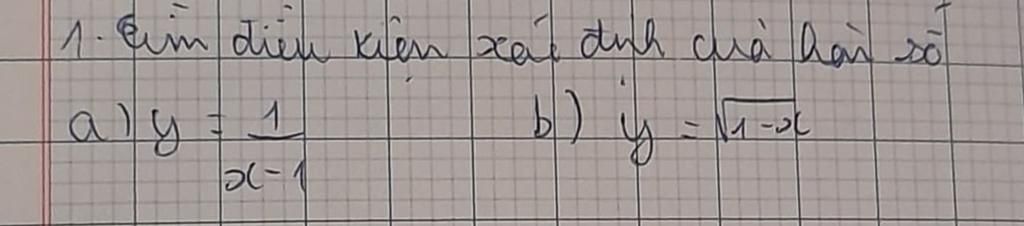 1. Tìm điều kiện xác định của hàm số
a) y = 1/(x-1) b) y = √(1-x)